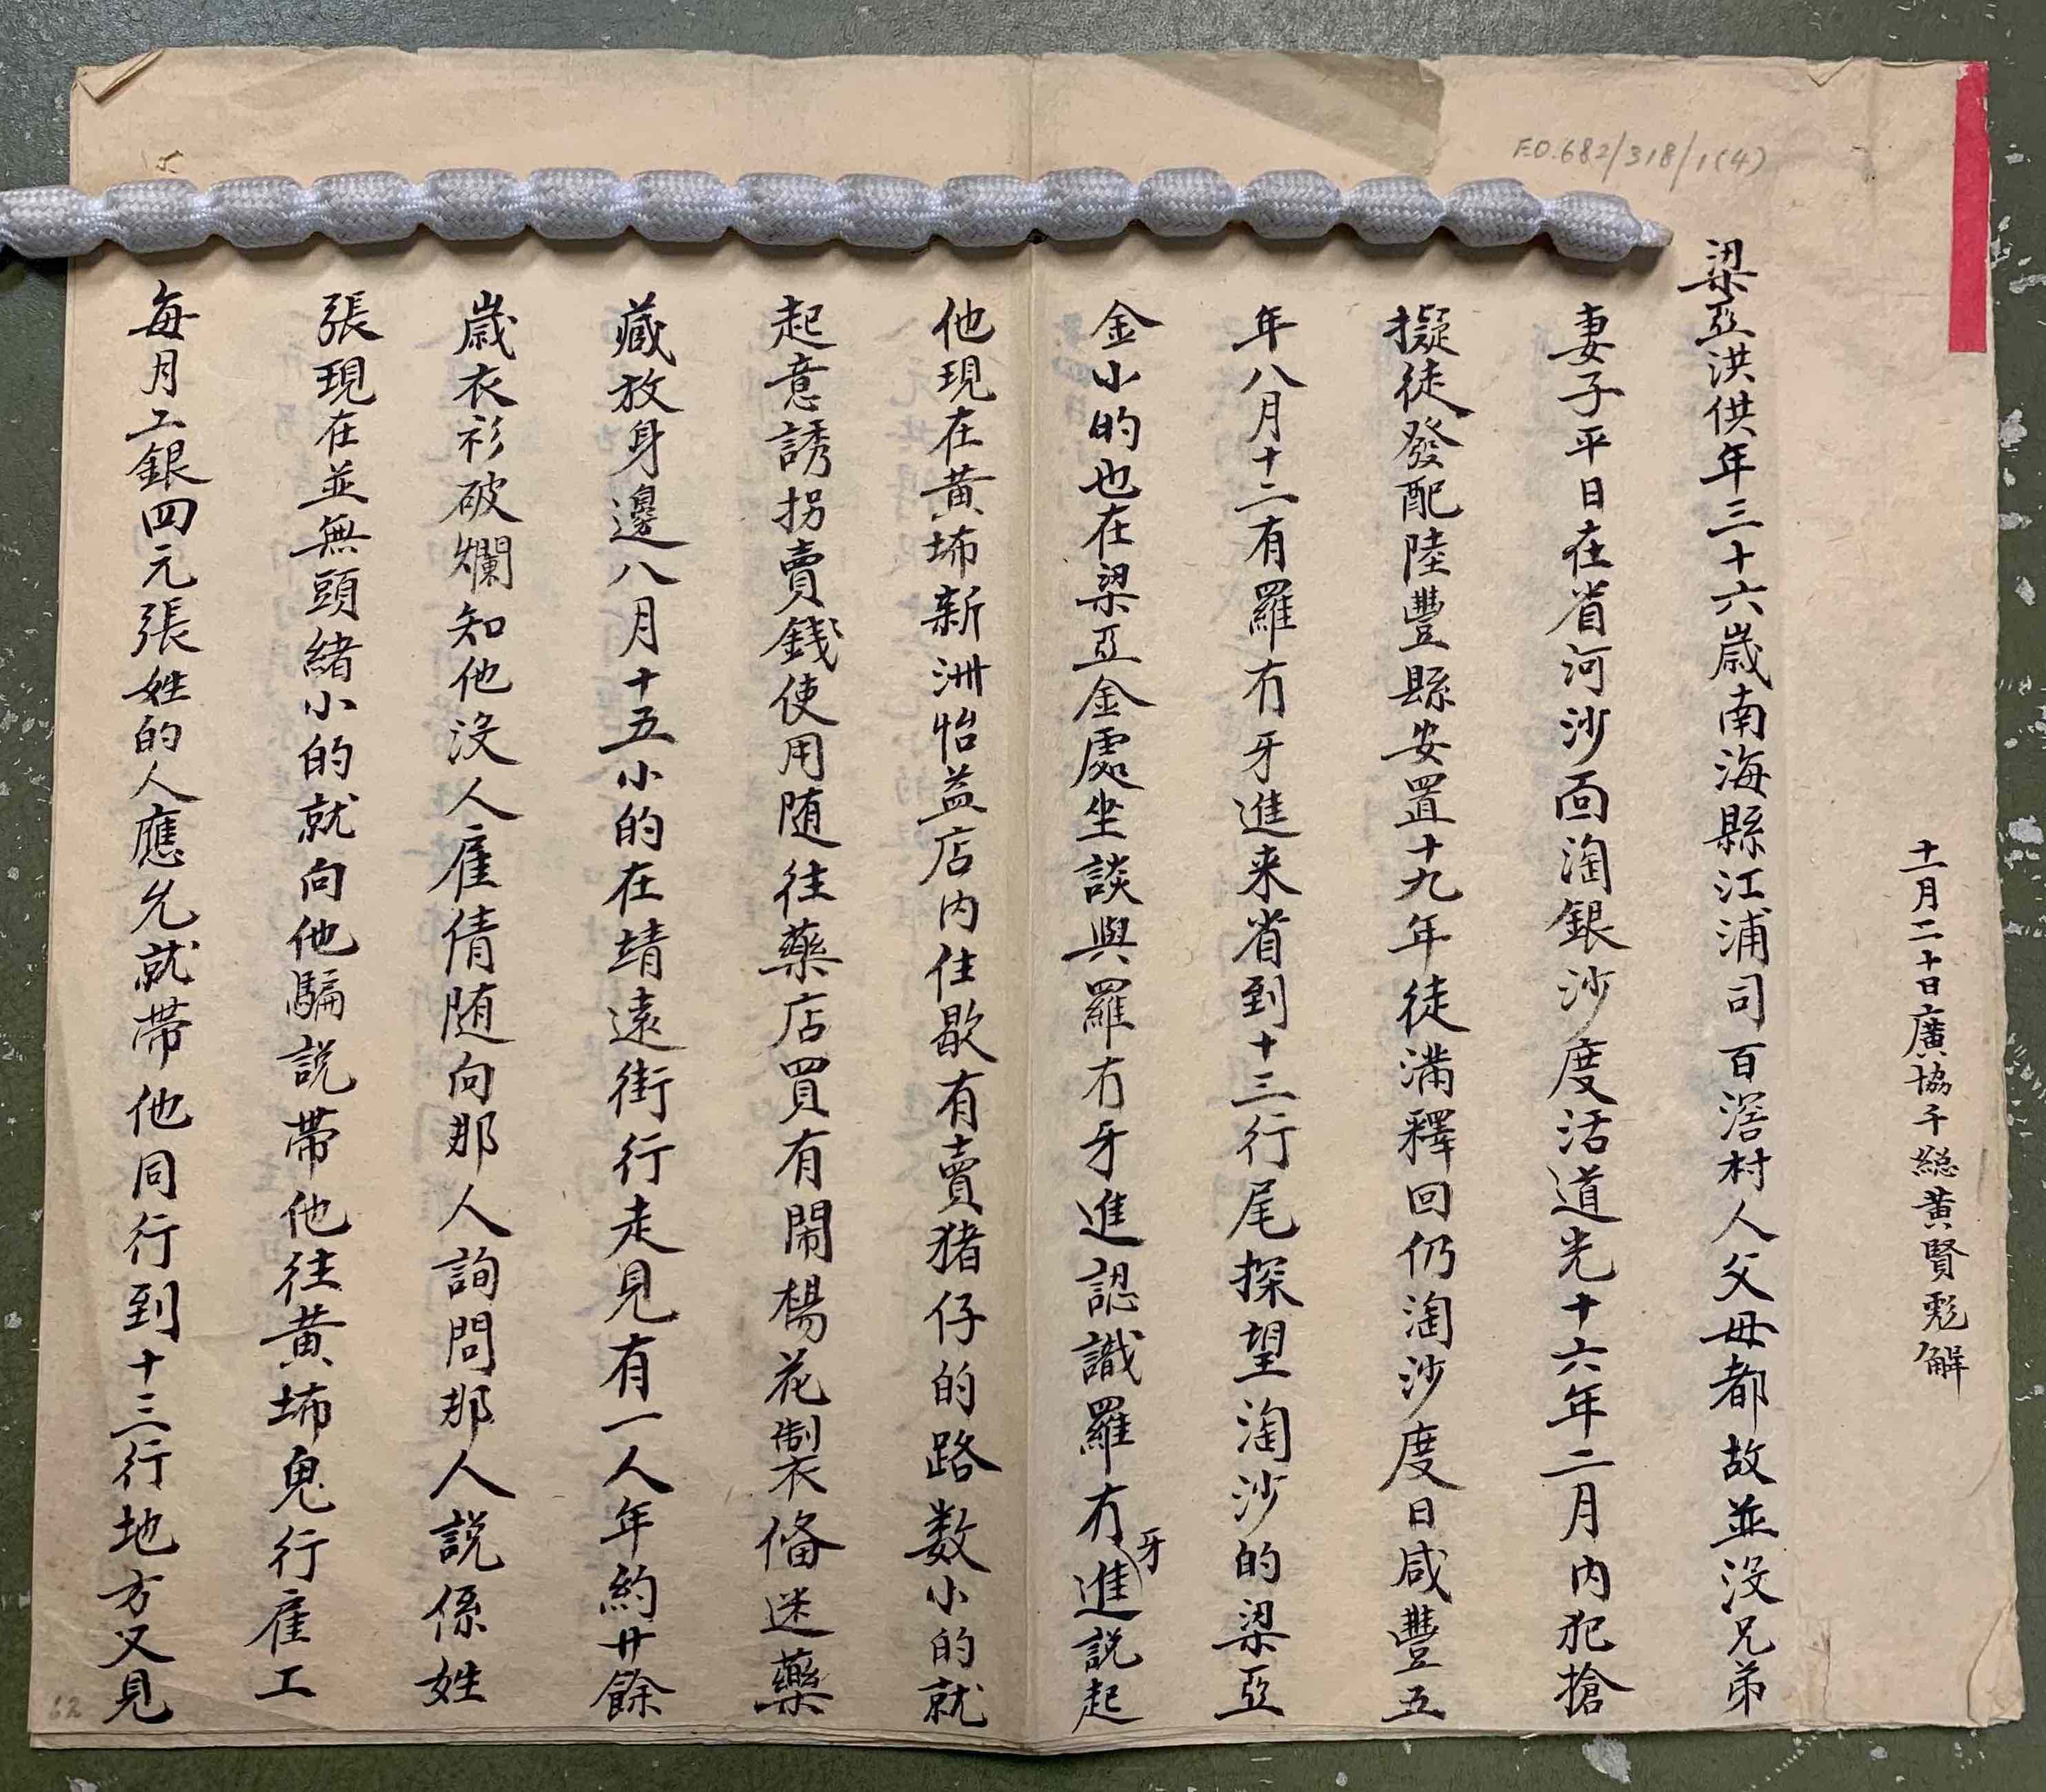 F.O.682/318/1(4)
十一月二十日廣協千総黄賢彪解
梁亞洪供年三十六歲南海縣江浦司百滘村人父母都故並没兄弟
妻子平日在省河沙面淘銀沙度活道光十六年二月内犯搶
擬徒發配陸豐縣安置十九年徒滿釋回仍淘沙度日咸豐五
年八月十二有羅冇牙進来省到十三行尾探望淘沙的梁亞
金小的也在梁亞金處坐談與羅冇牙進認識羅冇牙進說起
他現在黄埔新洲怡益店内住歇有賣猪仔的路数小的就
起意誘拐賣錢使用随往藥店買有鬧楊花製俻迷藥
藏放身邊八月十五小的在靖遠街行走見有一人年約廿餘
歲衣衫破爛知他没人雇倩随向那人詢問那人說係姓
張現在並無頭緒小的就向他騙說帶他往黄埔鬼行雇工
每月工銀四元張姓的人應允就帶他同行到十三行地方又見
62